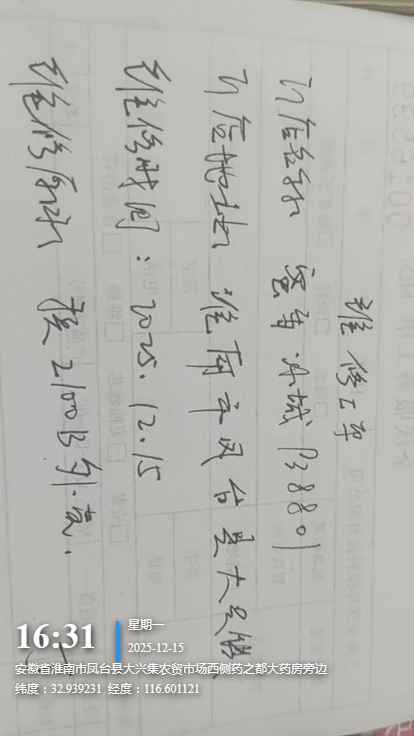 维修工单
门店名称 蜜雪冰城 138801
门店地址 淮南市凤台县大兴镇
维修时间：2025.12.15
维修原因 换2100B剂.气.
16:31
星期一
2025-12-15
安徽省淮南市凤台县大兴集农贸市场西侧药之都大药房旁边
纬度：32.939231 经度：116.601121